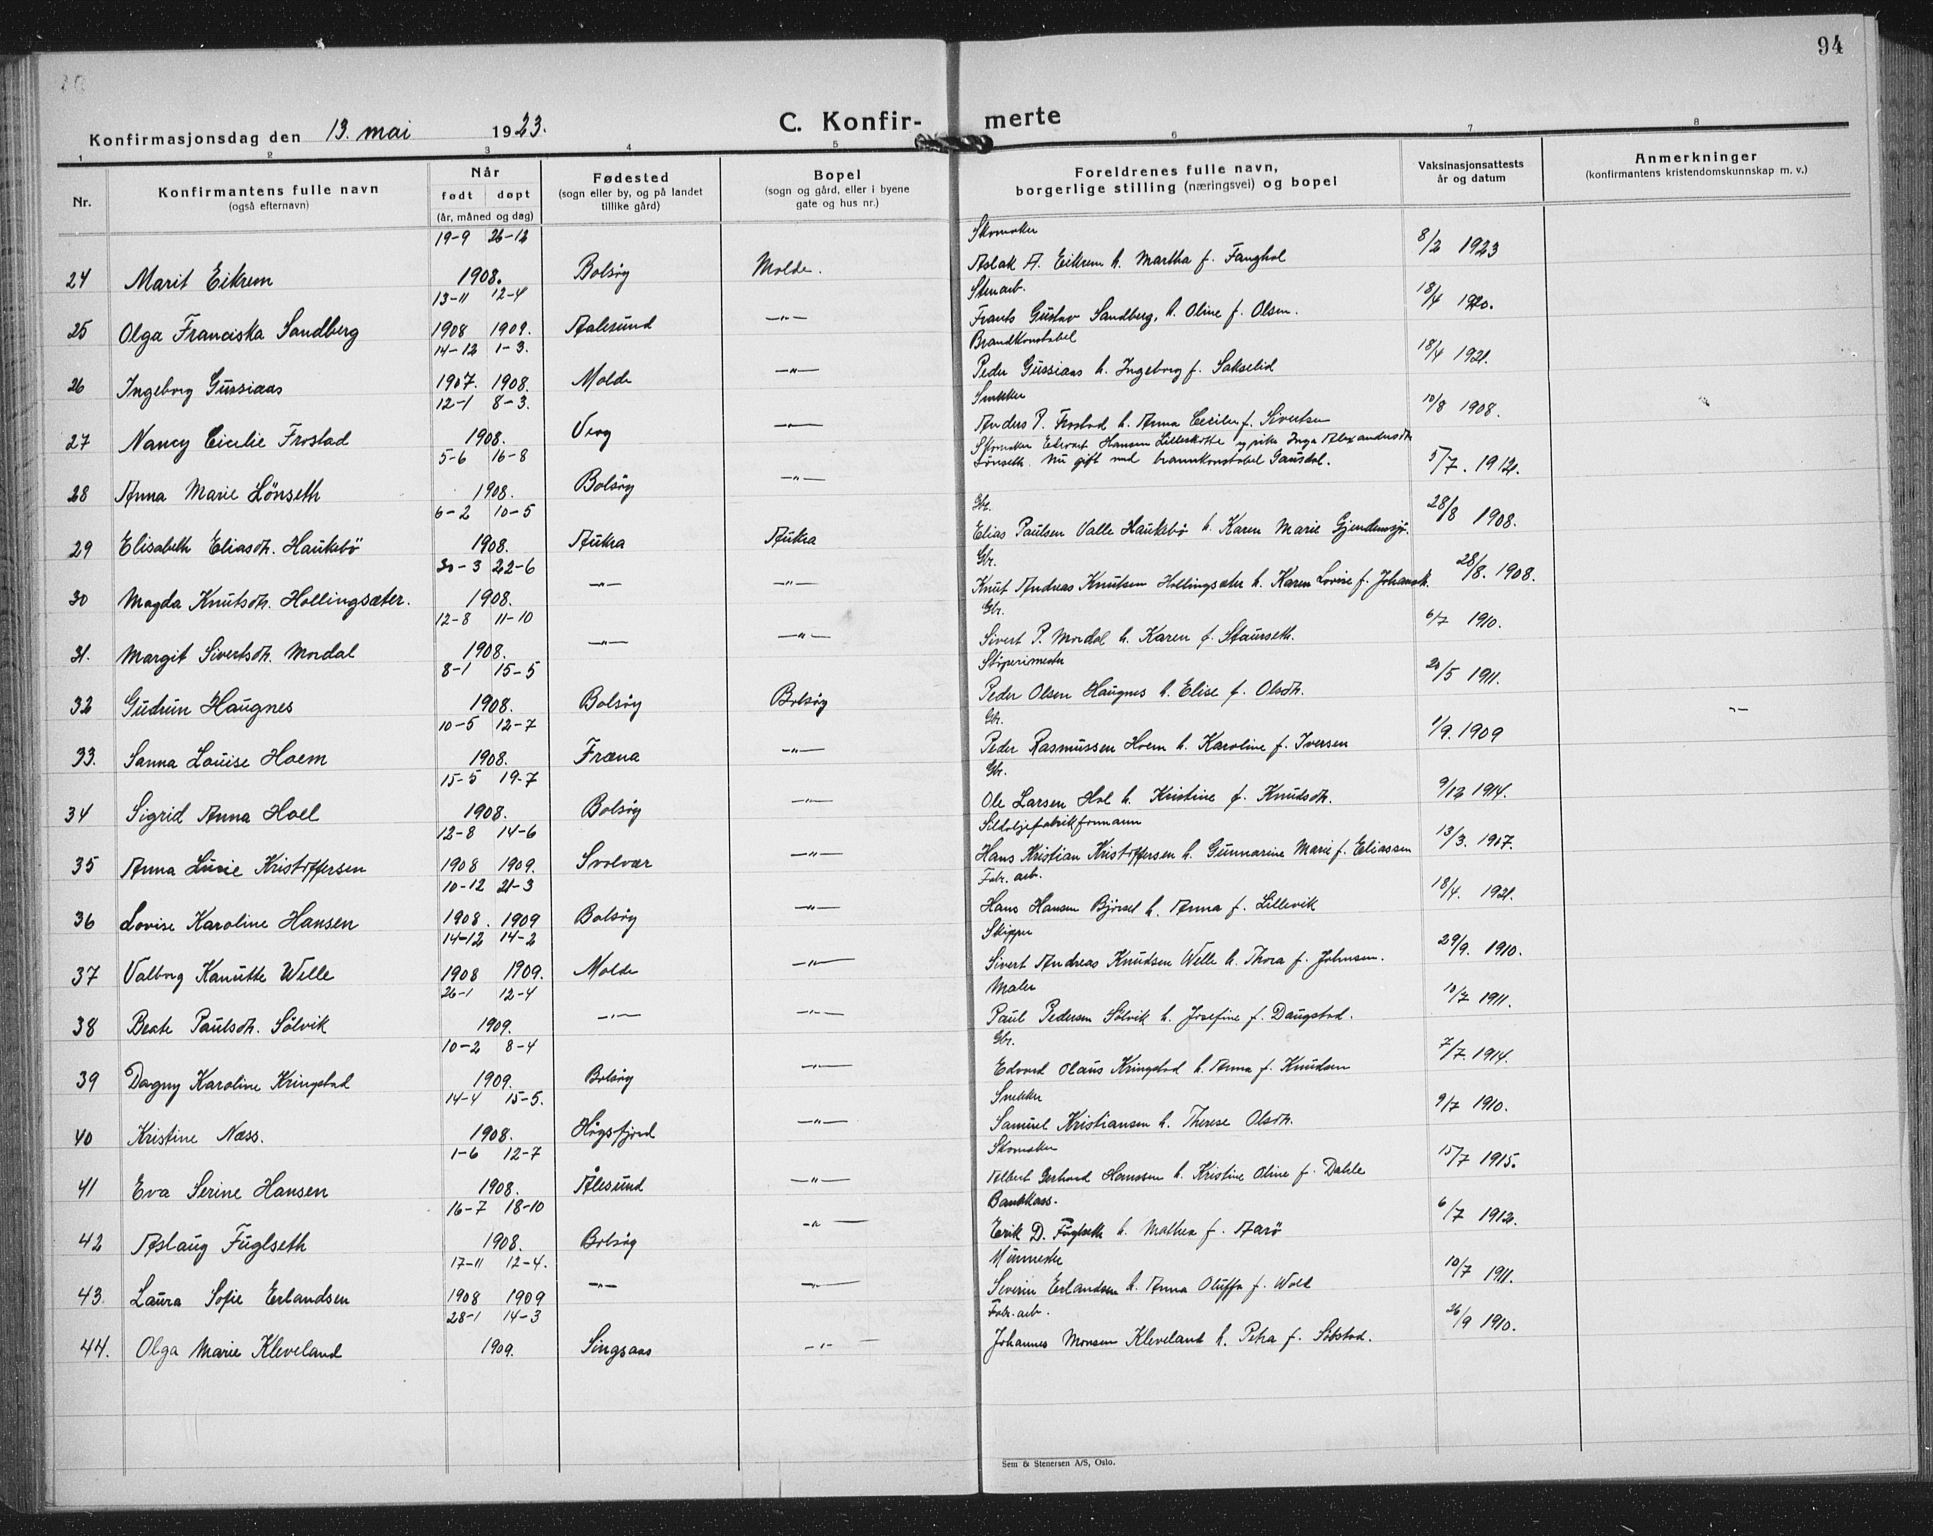 94
C. Konfir- merte
Konfirmasjonsdag den 13. mai 1923.
1 2 3 4 5 6 7 8
Nr.
Konfirmantens fulle navn
(også efternavn)
Når
født døpt
(år, måned og dag)
Fødested
(sogn eller by, og på landet
tillike gård)
Bopel
(sogn og gård, eller i byene
gate og hus nr.)
Foreldrenes fulle navn,
borgerlige stilling (næringsvei) og bopel
Vaksinasjonsattests
år og datum
Anmerkninger
(konfirmantens kristendomskunnskap m. v.)
19-9 26-12 Skomaker
24 Marit Eikrem 1908. Bolsøy Molde. Aslak A. Eikrem h. Martha f. Fanghol 8/2 1923
13-11 12-4 Stenarb.
25 Olga Franciska Sandberg 1908 1909. Aalesund -"- Frants Gustav Sandberg, h. Oline f. Olsen. 18/4 1920.
14-12 1-3. Brandkonstabel
26 Ingeborg Gussiaas 1907. 1908. Molde -"- Peder Gussiaas h. Ingeborg f. Sakselid 18/4 1921.
12-1 8-3. Snekker
27 Nancy Cicilie Frostad 1908. Veøy -"- Anders P. Frostad h. Anna Cecilie f. Sivertsen 10/8 1908.
5-6 16-8 Skomaker Edvart Hansen Lilleskotte og pike Inga Alexandersdtr
28 Anna Marie Lønseth 1908. Bolsøy -"- Lønseth. Nu gift med brannkonstabel Gausdal. 5/7. 1912.
6-2 10-5 Gbr.
29 Elisabeth Eliasdtr. Haukebø 1908. Aukra Aukra Elias Paulsen Valle Haukebø h. Karen Marie Gjendemsjø. 28/8 1908.
30-3 22-6 Gbr.
30 Magda Knutsdtr. Hollingsæter. 1908. -"- -"- Knut Andreas Knutsen Hollingsæter h. Karen Lovise f. Johansdtr. 28/8. 1908.
12-8 11-10 Gbr.
31. Margit Sivertsdtr. Mordal 1908. -"- -"- Sivert P. Mordal h. Karen f. Staurseth. 6/7 1910.
8-1 15-5 Støperimester
32 Gudrun Haugnes 1908. Bolsøy Bolsøy Peder Olsen Haugnes h. Elise f. Olsdtr. 20/5 1911.
10-5 12-7 Gbr.
33. Sanna Louise Hoem 1908. Fræna -"- Peder Rasmussen Hoem h. Karoline f. Iversen 1/9. 1909 -"-
15-5 19-7 Gbr.
34 Sigrid Anna Hoel 1908. Bolsøy -"- Ole Larsen Hol h. Kristine f. Knudsdtr. 9/12 1914.
12-8 14-6 Sildoljefabrikformann
35 Anna Lucie Kristoffersen 1908 1909. Svolvær -"- Hans Kristian Kristoffersen h. Gunnarine Marie f. Eliassen 13/3. 1917.
10-12 21-3 Fabr. arb.
36 Lovise Karoline Hansen 1908. 1909 Bolsøy -"- Hans Hansen Bjørset h. Anna f. Lillevik 18/4. 1921.
14-12 14-2 Skipper
37 Valborg Kanutte Welle 1908 1909. Molde -"- Sivert Andreas Knudsen Welle h. Thora f. Johnsen. 29/9. 1910.
26-1 12-4 Maler
38 Beate Paulsdtr. Sølvik 1909. -"- -"- Paul Pedersen Sølvik h. Josefine f. Daugstad. 10/7 1911.
10-2 8-4 Gbr.
39 Dagny Karoline Kringstad 1909. Bolsøy -"- Edvard Olaus Kringstad h. Anna f. Knudsen 7/7. 1914.
14-4 15-5. Snekker
40 Kristine Næss. 1908. Høgsfjord -"- Samuel Kristiansen h. Therese Olsdtr. 9/7 1910.
1-6 12-7 Skomaker
41 Eva Serine Hansen 1908. Ålesund -"- Albert Gerhard Hanssen h. Kristine Oline f. Dahle 15/7 1915.
16-7 18-10 Bankkass.
42 Aslaug Fuglseth 1908. Bolsøy -"- Erik D. Fuglseth h. Mathea f. Aarø 6/7 1912.
17-11 12-4. Murmester
43. Laura Sofie Erlandsen 1908 1909 -"- -"- Severin Erlandsen h. Anna Oluffa f. Wold 10/7 1911.
28-1 14-3 Fabr. arb.
44. Olga Marie Kleveland 1909. Singsaas -"- Johannes Monsen Kleveland h. Petra f. Solstad. 26/9 1910.
Sem & Stenersen A/S, Oslo.